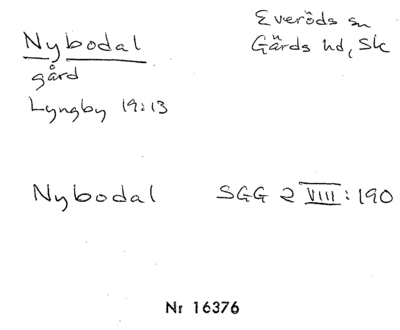 Nybodal
gård
Lyngby 19:13
Everöds sn
Gärds hd, Sk
Nybodal SGG 2 VIII:190
Nr 16376